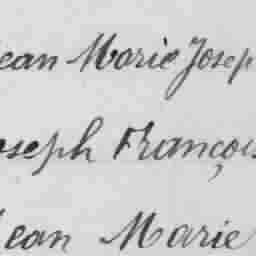 Jean Marie Josep
oseph François
Jean Marie